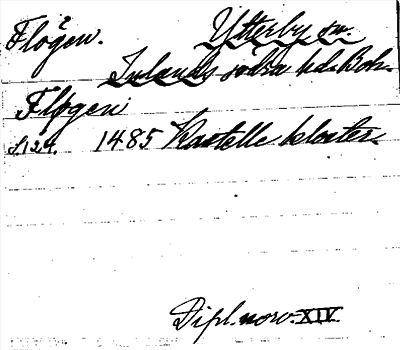 Flögen. Ytterby sn.
Inlands södra hd. Boh.
Fløgen
s. 124. 1485 Kastelle kloster.
Dipl. norv. XIV.